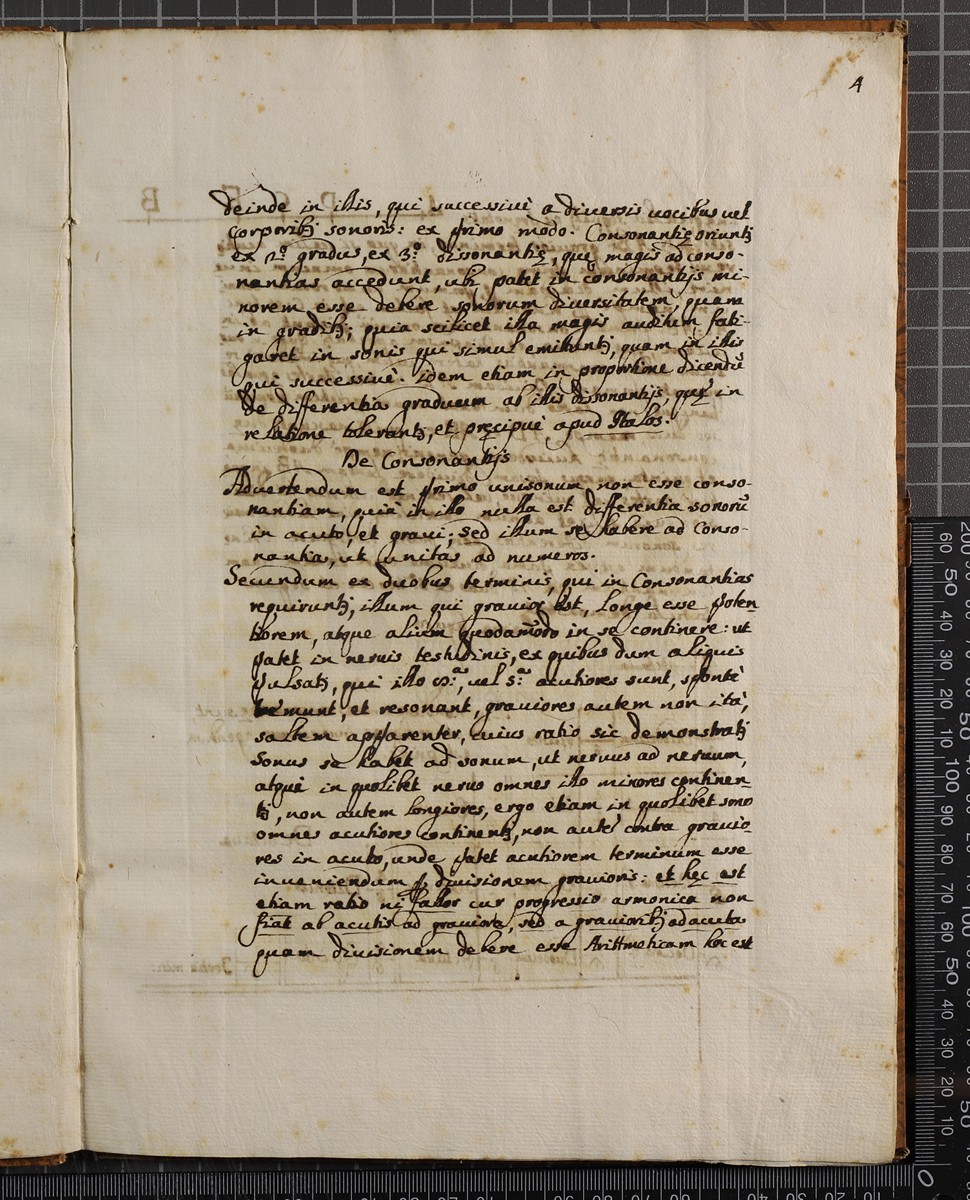 4
deinde in illis, qui successivè a diversis vocibus vel
corporibꝫ sonoris: ex primo modo. Consonantię oriuntꝫ
ex 2.º gradus, ex 3.º dissonantię, quę magis ad conso-
nantias accedunt, ubi patet in consonantijs mi-
norem esse debere sonorum diversitatem, quam
in gradibꝫ; quia scilicet illa magis auditum fati-
garet in sonis qui simul emittuntꝫ, quam in illis
qui successivè. idem etiam in proportione dicendũ
de differentia graduum ab illis dissonantijs, quę in
relatione tolerantꝫ, et pręcipuè apud Italos.
De Consonantijs
Advertendum est primo unisonum non esse conso-
nantiam, quia in illo nulla est differentia sonorũ
in acuto, et gravi; sed illum se habere ad Conso-
nantia, ut unitas ad numeros.
Secundum ex duobus terminis, qui in Consonantias
requiruntꝫ, illum qui gravior est, longe esse poten
tiorem, atque alium quodam̃odo in se continere: ut
patet in nervis testudinis, ex quibus dum aliquis
pulsatꝫ, qui illo vel 5.ª acutiores sunt, spontè
tremunt, et resonant, graviores autem non ità,
saltem apparenter, cuius ratio sic demonstratꝫ
Sonus se habet ad sonum, ut nervus ad nervum,
atqui in quolibet nervo omnes illo minores continen-
tꝫ, non autem longiores, ergo etiam in quolibet sono
omnes acutiores continentꝫ, non autẽ contra gravio
res in acuto, unde patet acutiorem terminum esse
inveniendum ꝑ divisionem gravioris: et hęc est
etiam ratio ni fallor cur progressio armonica non
fiat ab acutis ad graviora, sed a gravioribꝫ ad acuta
quam divisionem debere esse Arittmeticam hoc est